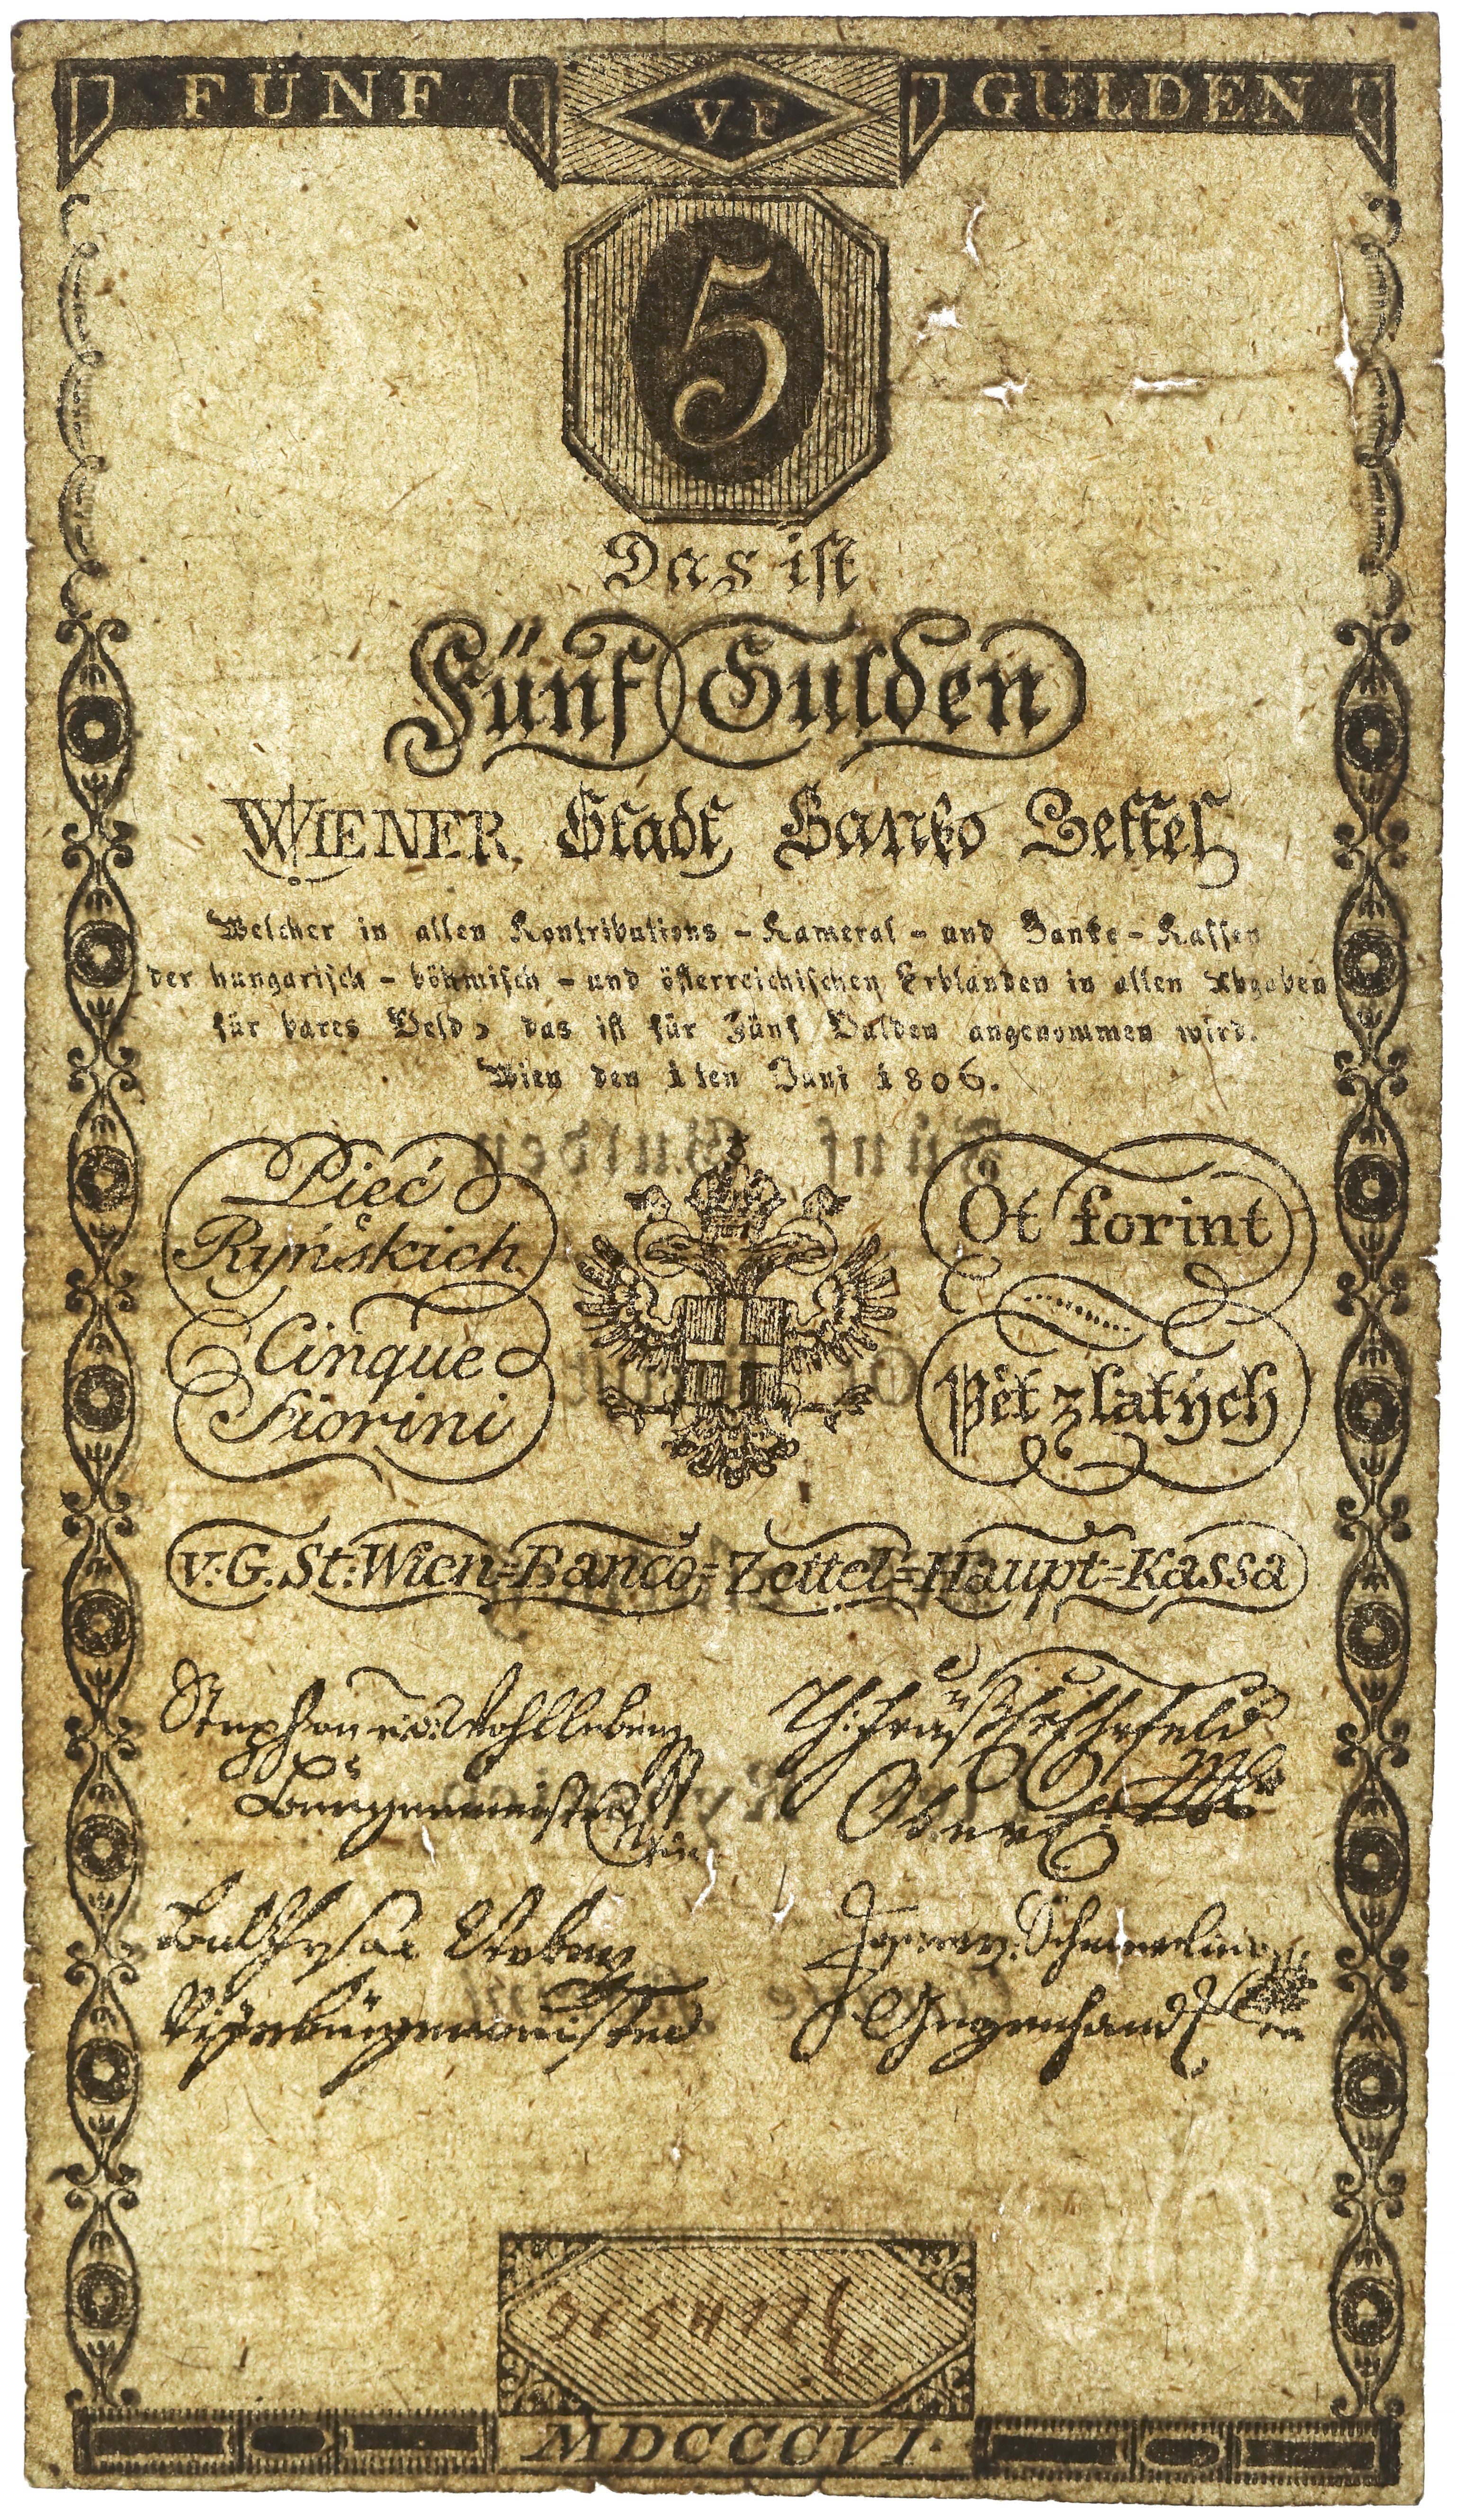 FÜNF VF GULDEN
5
Das ist
Fünf Gulden
WIENER Stadt Banko Zettel
Welcher in allen Kontributions - Kameral - und Banke - Kassen
der hungarisch - böhmisch - und österreichischen Erblanden in allen Abgaben
für bares Geld, das ist für Fünf Gulden angenommen wird.
Wien den 1ten Juni 1806.
Fünf Gulden
Pięć
Ryńskich
Cinque
Fiorini
Öt forint
Pět zlatých
v: G. St: Wien=Banco=Zettel=Haupt=Kassa
Stephan v: Wohlleben
Burgermeister
Ober
Vizebürgermeister
Schmerling
Gegenhandl
MDCCCVI.